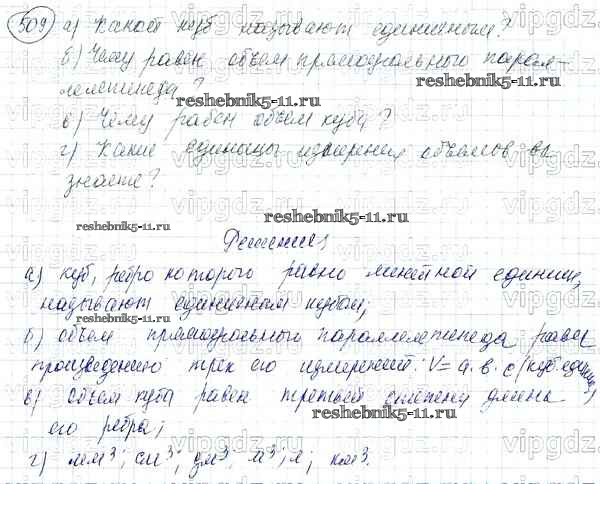 509 а) Какой куб называют единичным?
б) Чему равен объем прямоугольного парал-
лелепипеда?
reshebnik5-11.ru
в) Чему равен объем куба?
г) Какие единицы измерения объемов вы
знаете?
reshebnik5-11.ru
reshebnik5-11.ru
Решение
а) куб, ребро которого равно линейной единице,
называют единичным кубом;
б) объем прямоугольного параллелепипеда равен
произведению трех его измерений: V = a.в.c (куб.единиц)
в) объем куба равен третьей степени длины
его ребра;
reshebnik5-11.ru
г) мм³; см³; дм³; м³; л; км³.